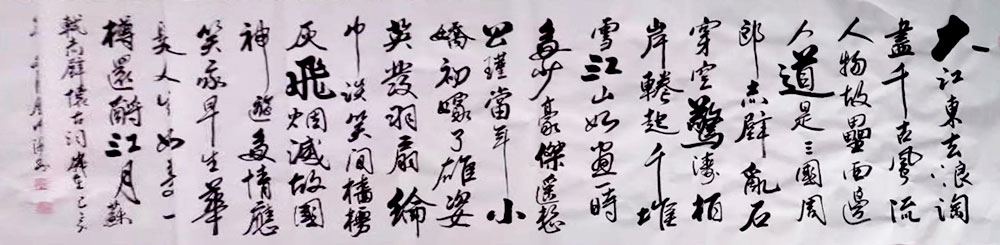 大江東去浪淘
盡千古風流
人物故壘西邊
人道是三國周
郎赤壁亂石
穿空驚濤拍
岸捲起千堆
雪江山如畫一時
多少豪傑遙想
公瑾當年小
喬初嫁了雄姿
英發羽扇綸
巾談笑間檣櫓
灰飛烟滅故國
神遊多情應
笑我早生華
髮人生如夢一
樽還酹江月蘇
軾赤壁懷古詞歲在己亥